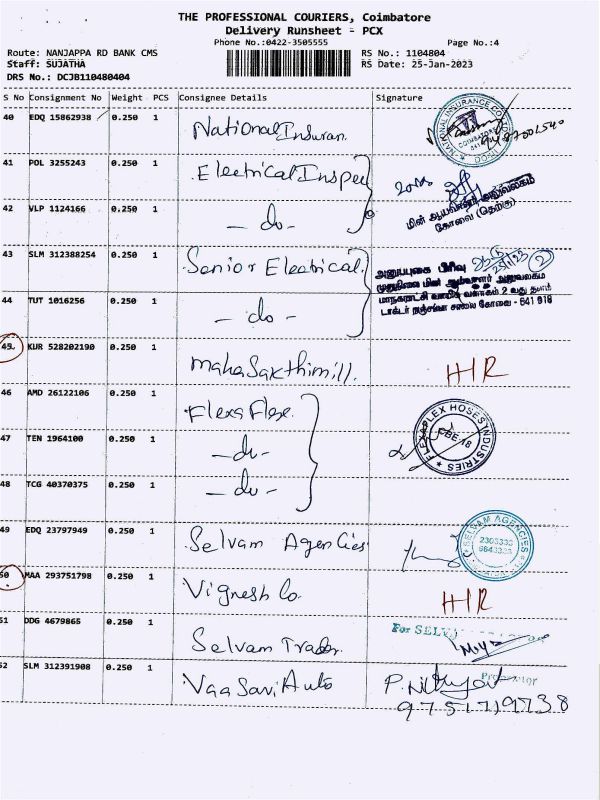 THE PROFESSIONAL COURIERS, Coimbatore
Delivery Runsheet - PCX
Phone No.:0422-3505555 Page No.:4
Route: NANJAPPA RD BANK CMS RS No.: 1104804
Staff: SUJATHA RS Date: 25-Jan-2023
DRS No.: DCJB110480404
S No Consignment No Weight PCS Consignee Details Signature
40 EDQ 15862938 0.250 1 National Insuran.
NATIONAL INSURANCE CO
COIMBATORE
41 POL 3255243 0.250 1 Electrical Inspec
42 VLP 1124166 0.250 1 - do -
மின் ஆய்வாளர் அலுவலகம்
கோவை (தெற்கு)
43 SLM 312388254 0.250 1 Senior Electrical.
அனுப்புகை பிரிவு 25/1/23 2
முதுநிலை மின் ஆய்வாளர் அலுவலகம்
மாநகராட்சி வணிக வளாகம் 2 வது தளம்
டாக்டர் நஞ்சப்பா சாலை கோவை - 641 018
44 TUT 1016256 0.250 1 - do -
45 KUR 528202190 0.250 1 Maha Sakthi mill. H/R
46 AMD 26122106 0.250 1 Flexa Flex.
47 TEN 1964100 0.250 1 - do -
FLEXAPLEX HOSES INDUSTRIES
CBE-18
48 TCG 40370375 0.250 1 - do -
49 EDQ 23797949 0.250 1 Selvam Agencies
SELVAM AGENCIES
50 MAA 293751798 0.250 1 Vignesh Co. H/R
51 DDG 4679865 0.250 1 Selvam Trader.
For SELV
Proprietor
52 SLM 312391908 0.250 1 Vaa Savi Auto
9751719738